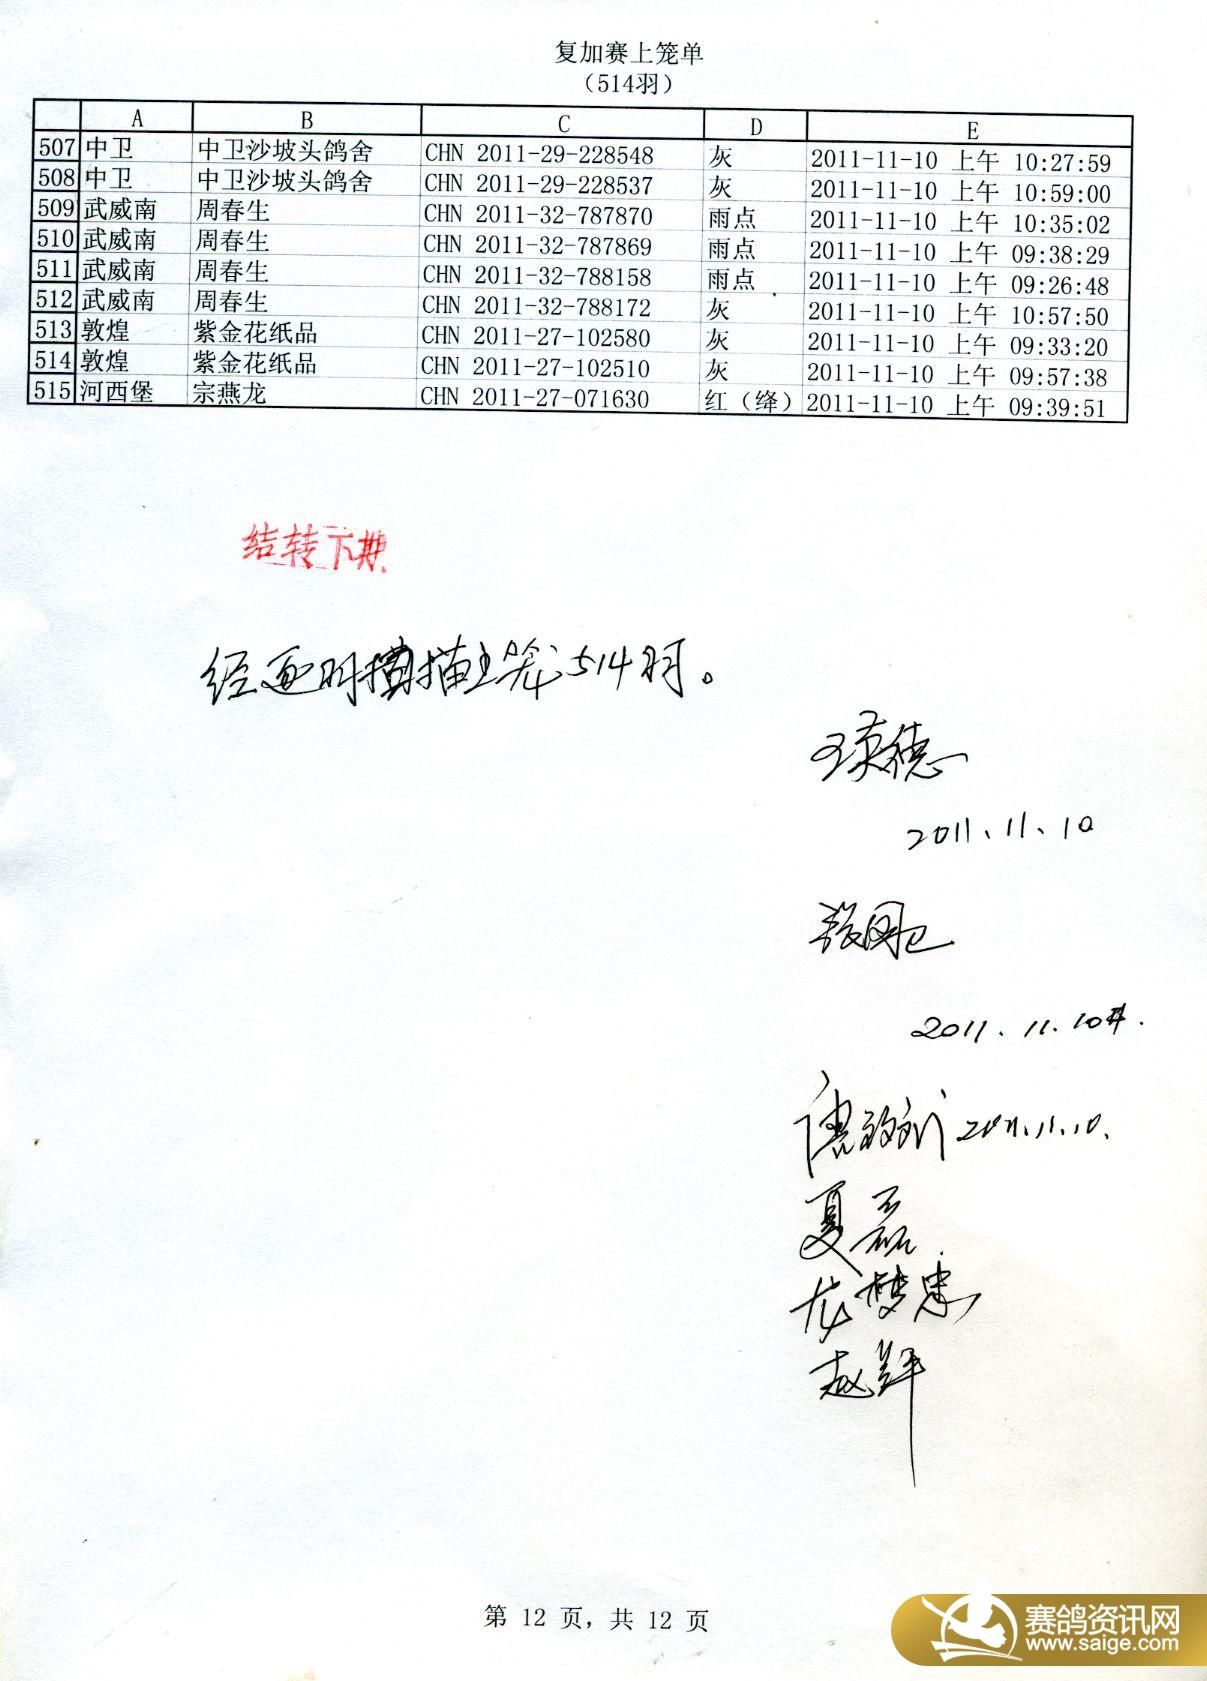 复加赛上笼单
（514羽）
A B C D E
507 中卫 中卫沙坡头鸽舍 CHN 2011-29-228548 灰 2011-11-10 上午 10:27:59
508 中卫 中卫沙坡头鸽舍 CHN 2011-29-228537 灰 2011-11-10 上午 10:59:00
509 武威南 周春生 CHN 2011-32-787870 雨点 2011-11-10 上午 10:35:02
510 武威南 周春生 CHN 2011-32-787869 雨点 2011-11-10 上午 09:38:29
511 武威南 周春生 CHN 2011-32-788158 雨点 2011-11-10 上午 09:26:48
512 武威南 周春生 CHN 2011-32-788172 灰 2011-11-10 上午 10:57:50
513 敦煌 紫金花纸品 CHN 2011-27-102580 灰 2011-11-10 上午 09:33:20
514 敦煌 紫金花纸品 CHN 2011-27-102510 灰 2011-11-10 上午 09:57:38
515 河西堡 宗燕龙 CHN 2011-27-071630 红（绛） 2011-11-10 上午 09:39:51
结转下期
经逐羽扫描上笼514羽。
2011.11.10
2011.11.10
2011.11.10.
夏磊
龙梦忠
第 12 页，共 12 页
赛鸽资讯网
www.saige.com